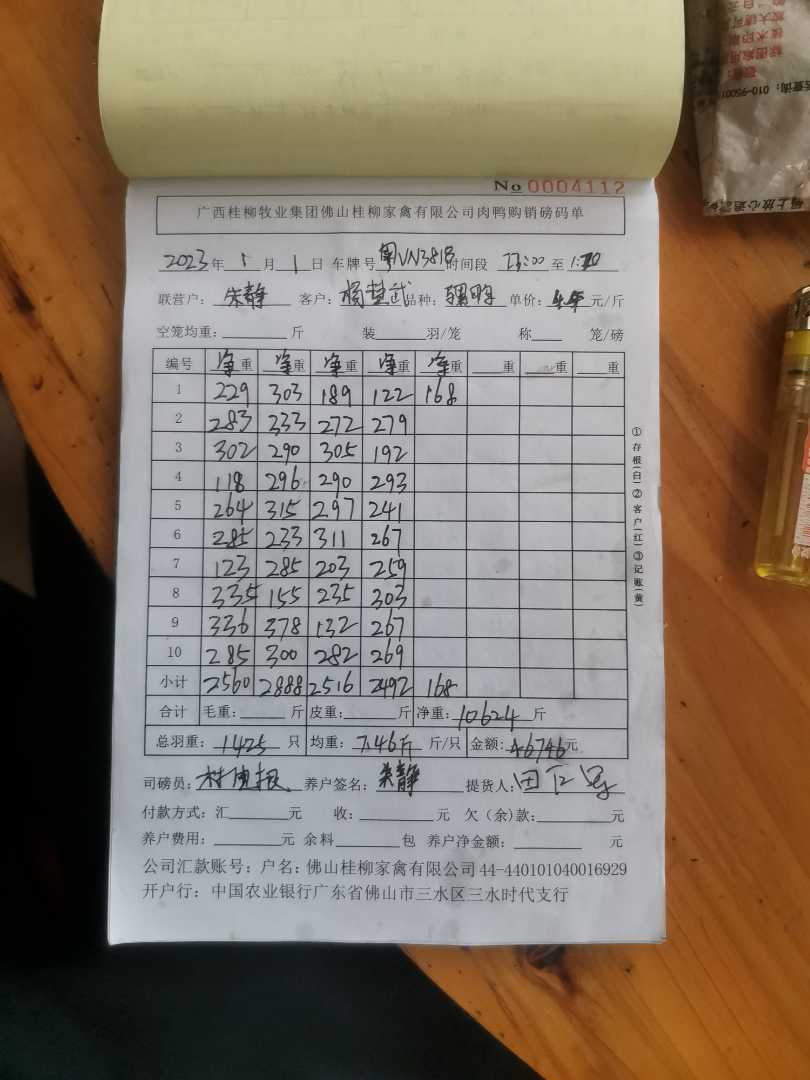 No 0004112
广西桂柳牧业集团佛山桂柳家禽有限公司肉鸭购销磅码单
2023年 1月 1日 车牌号 粤VN3818 时间段 至 1:20
联营户: 朱静 客户: 杨楚武 品种: 单价: 4.4 元/斤
空笼均重: 斤 装 羽/笼 称 笼/磅
编号 净重 净重 净重 净重 净重 重 重 重
1 229 303 189 122 168
2 283 333 272 279
3 302 290 305 192
4 118 296 290 293
5 264 315 297 241
6 285 233 311 267
7 123 285 203 259
8 335 155 235 303
9 336 378 132 267
10 285 300 282 269
小计 2560 2888 2516 2492 168
合计 毛重: 斤 皮重: 斤 净重: 10624 斤
总羽重: 1425 只 均重: 7.46斤 斤/只 金额: 46746元
司磅员: 养户签名: 朱静 提货人: 田
付款方式: 汇 元 收: 元 欠(余)款: 元
养户费用: 元 余料 包 养户净金额: 元
公司汇款账号: 户名: 佛山桂柳家禽有限公司 44-440101040016929
开户行: 中国农业银行广东省佛山市三水区三水时代支行
①存根(白)②客户(红)③记账(黄)
010-9500